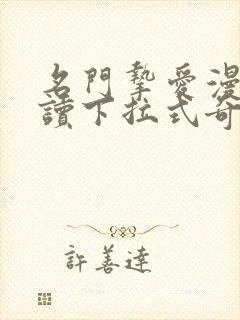 名門摯愛漫
讀下拉式奇
許善達